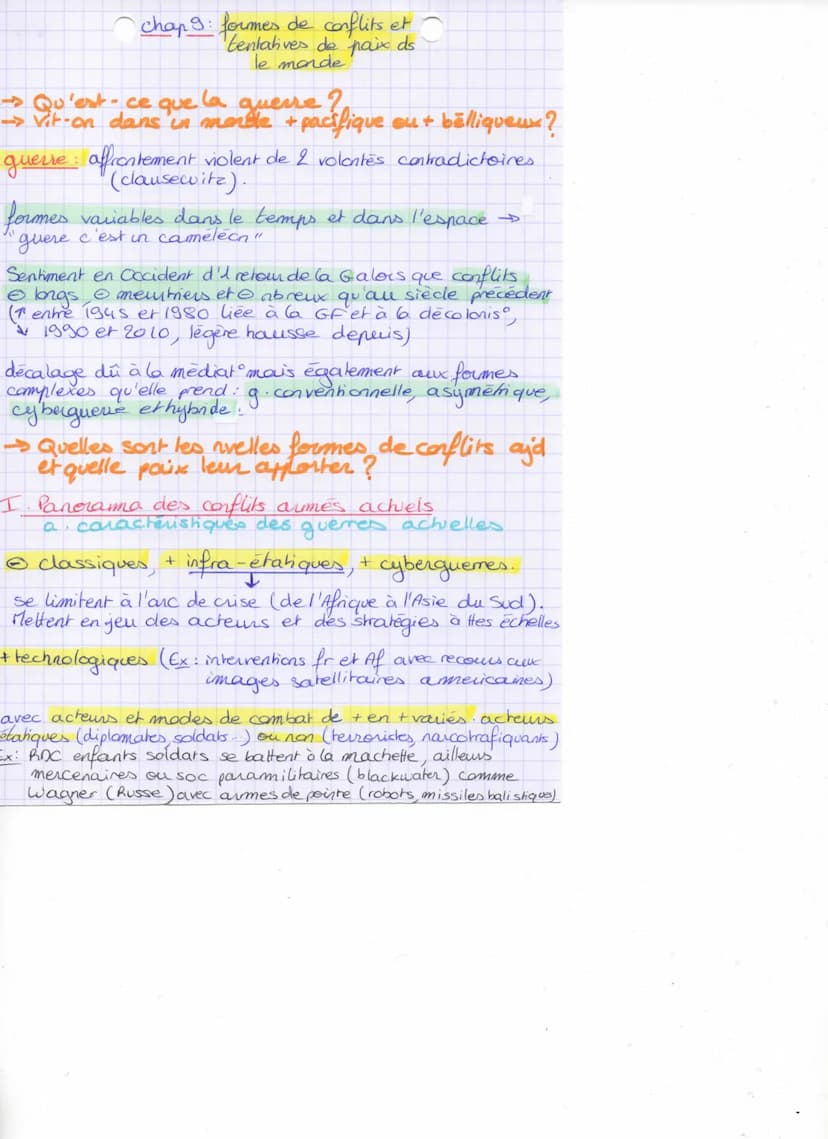 chap 9: formes de conflits et
tentatives de paix ds
le monde
→ Qu'est-ce que la guerre?
→ Vit-on dans un monde + pacifique ou + bélliqueux?
guerre: affrontement violent de 2 volontés contradictoires
(clausewitz).
formes variables dans le temps et dans l'espace →
"guere c'est un caméléon"
Sentiment en Occident d'1 retour de la G alors que conflits
⊖ longs, ⊖ meurtriers et ⊖ nbreux qu'au siècle précédent
(↑ entre 1945 et 1980 liée à la GF et à la décolonis°,
↓ 1990 et 2010, légère hausse depuis)
décalage dû à la médiat° mais également aux formes
complexes qu'elle prend: g. conventionnelle, asymétrique,
cyberguerre et hybride.
→ Quelles sont les nvelles formes de conflits ajd
et quelle paix leur apporter?
I. Panorama des conflits armés actuels
a. caractéristiques des guerres actuelles
⊖ classiques, + infra-étatiques, + cyberguerres.
↓
se limitent à l'arc de crise (de l'Afrique à l'Asie du Sud).
Mettent en jeu des acteurs et des stratégies à ttes échelles
+ technologiques (Ex: interventions fr et Af avec recours aux
images satellitaires américaines)
avec acteurs et modes de combat de + en + variés. acteurs
étatiques (diplomates, soldats...) ou non (terroristes, narcotrafiquants)
Ex: RDC enfants soldats se battent à la machette, ailleurs
mercenaires ou soc paramilitaires (blackwater) comme
Wagner (Russe) avec armes de pointe (robots, missiles balistiques)